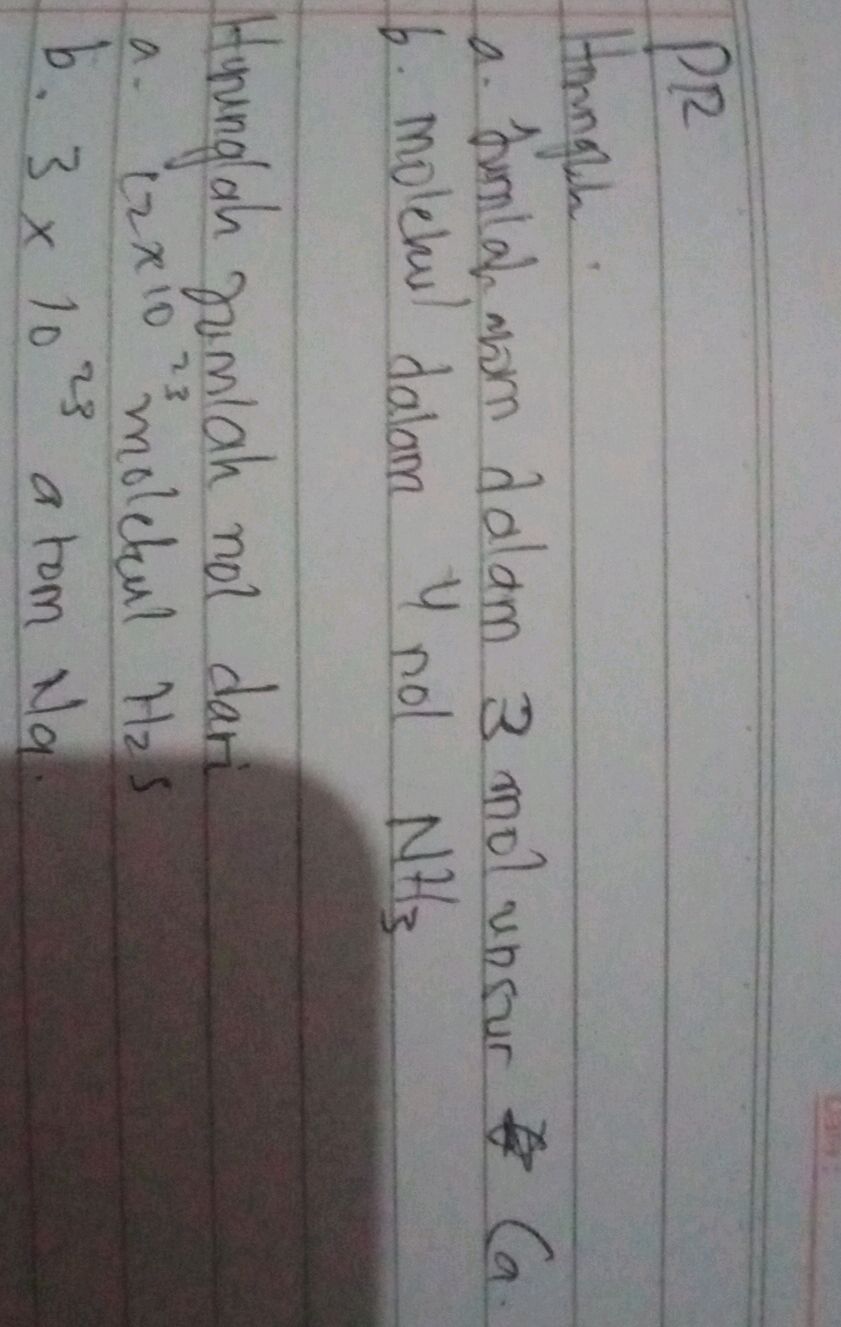 PR
Hitunglah.
a. Jumlah atom dalam 3 mol unsur Ca.
b. molekul dalam 4 mol NH3
Hitunglah jumlah mol dari
a. 12 x 10²³ molekul H2S
b. 3 x 10²³ atom Na.